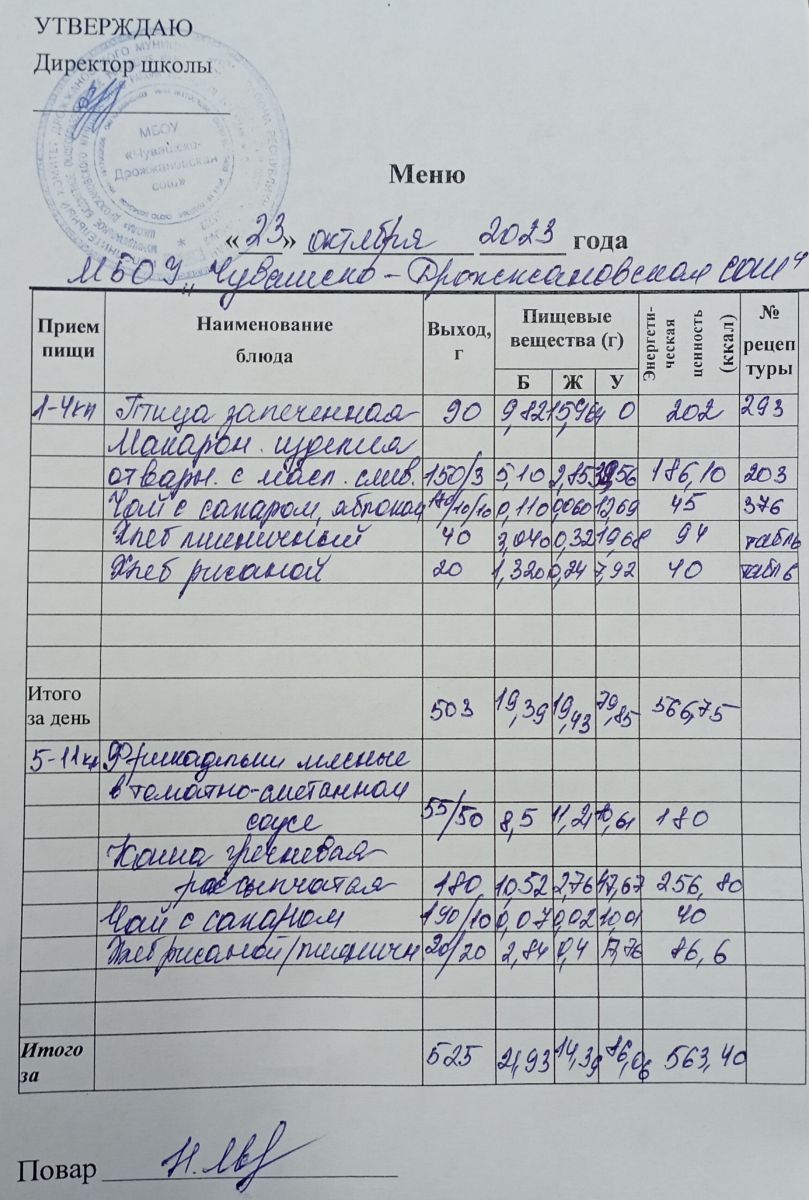 УТВЕРЖДАЮ
Директор школы
МБОУ
«Чувашско-
Дрожжановская
сош»
Меню
«23» октября 2023 года
МБОУ "Чувашско-Дрожжановская сош"
Прием пищи Наименование блюда Выход, г Пищевые вещества (г) Б Ж У Энергетическая ценность (ккал) № рецептуры
1-4кл Птица запеченная 90 9,82 15,964 0 202 293
Макарон. изделия
отварн. с масл. слив. 150/3 5,10 2,85 186,10 203
Чай с сахаром, яблокой 10/10 0,110 0,060 12,69 45 376
Хлеб пшеничный 40 3,040 0,32 19,68 94 табль
Хлеб ржаной 20 1,320 0,24 7,92 40 табль
Итого за день 503 19,39 19,43 79,85 566,75
5-11кл Фрикадельки мясные
в томатно-сметанном
соусе 55/50 8,5 11,21 10,61 180
Каша гречневая
рассыпчатая 180 10,52 2,76 47,67 256,80
Чай с сахаром 190/10 0,07 0,02 10,01 40
Хлеб ржаной/пшеничн 20/20 2,84 0,4 17,76 86,6
Итого за 525 21,93 14,39 86,06 563,40
Повар